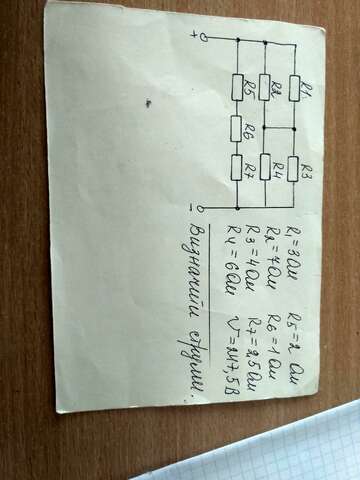 R1 R3
R2 R4
R5 R6 R7
+ −
R1 = 3 Ом R5 = 2 Ом
R2 = 7 Ом R6 = 1 Ом
R3 = 4 Ом R7 = 2,5 Ом
R4 = 6 Ом U = 247,5 В
Визначити струми.